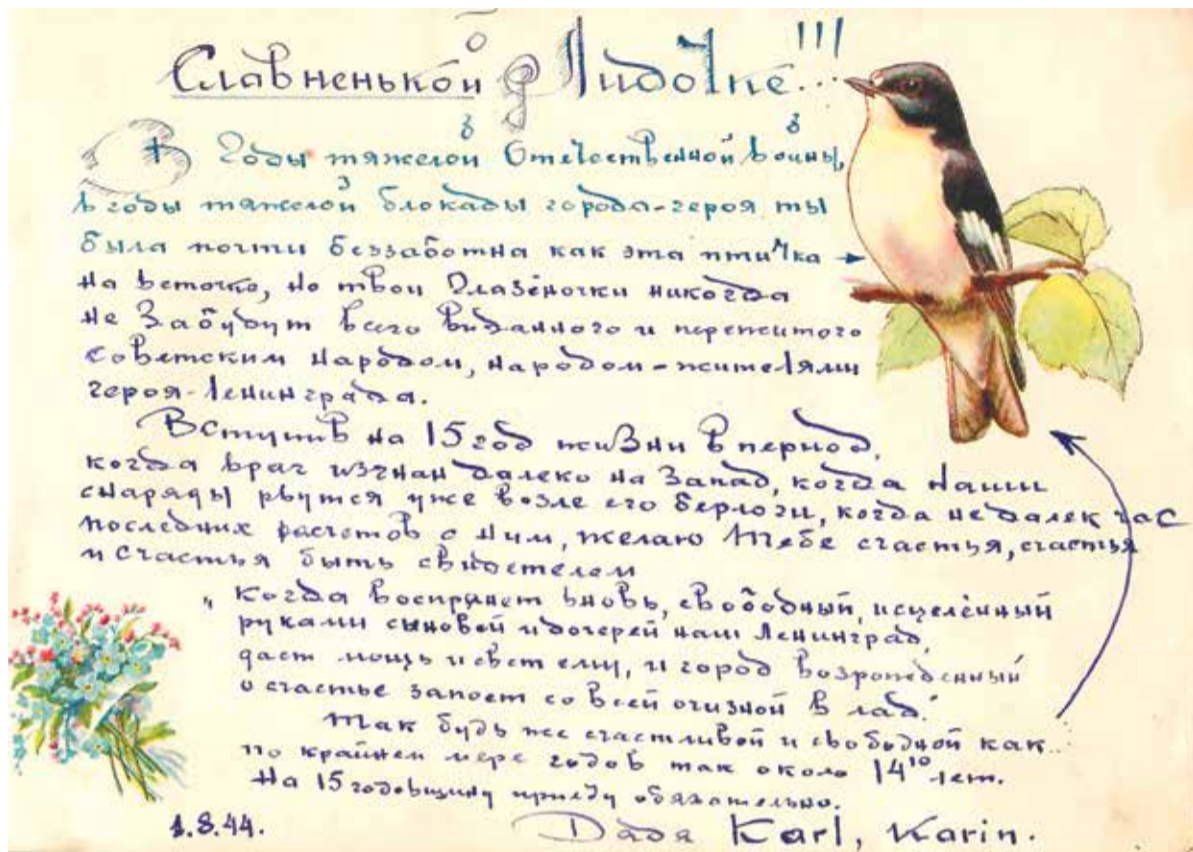 Славненькой Лидочке..!!!
В годы тяжелой Отечественной войны,
в годы тяжелой блокады города-героя ты
была почти беззаботна как эта птичка →
на веточке, но твои глазёночки никогда
не забудут всего виданного и пережитого
советским народом, народом-жителями
героя-Ленинграда.
Вступив на 15 год жизни в период,
когда враг изгнан далеко на Запад, когда наши
снаряды рвутся уже возле его берлоги, когда недалек час
последних расчетов с ним, желаю тебе счастья, счастья
и счастья быть свидетелем
„Когда воспрянет вновь, свободный, исцелённый
руками сыновей и дочерей наш Ленинград,
даст мощь и свет ему, и город возрожденный
о счастье запоет со всей отчизной в лад."
Так будь же счастливой и свободной как...
по крайней мере годов так около 14¹⁰ лет.
На 15 годовщину приеду обязательно.
1.8.44.
Дядя Karl, Karin.